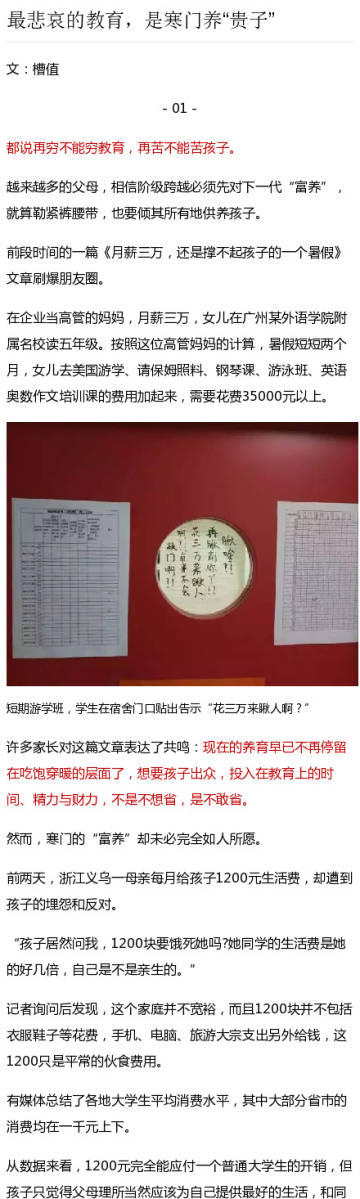 最悲哀的教育，是寒门养“贵子”
文：槽值
- 01 -
都说再穷不能穷教育，再苦不能苦孩子。
越来越多的父母，相信阶级跨越必须先对下一代“富养”，
就算勒紧裤腰带，也要倾其所有地供养孩子。
前段时间的一篇《月薪三万，还是撑不起孩子的一个暑假》
文章刷爆朋友圈。
在企业当高管的妈妈，月薪三万，女儿在广州某外语学院附
属名校读五年级。按照这位高管妈妈的计算，暑假短短两个
月，女儿去美国游学、请保姆照料、钢琴课、游泳班、英语
奥数作文培训课的费用加起来，需要花费35000元以上。
瞅啥？！
再瞅削你丫！！
花三万来瞅人
啊？！自弟不会
敲门啊！！
短期游学班，学生在宿舍门口贴出告示“花三万来瞅人啊？”
许多家长对这篇文章表达了共鸣：现在的养育早已不再停留
在吃饱穿暖的层面了，想要孩子出众，投入在教育上的时
间、精力与财力，不是不想省，是不敢省。
然而，寒门的“富养”却未必完全如人所愿。
前两天，浙江义乌一母亲每月给孩子1200元生活费，却遭到
孩子的埋怨和反对。
“孩子居然问我，1200块要饿死她吗?她同学的生活费是她
的好几倍，自己是不是亲生的。”
记者询问后发现，这个家庭并不宽裕，而且1200块并不包括
衣服鞋子等花费，手机、电脑、旅游大宗支出另外给钱，这
1200只是平常的伙食费用。
有媒体总结了各地大学生平均消费水平，其中大部分省市的
消费均在一千元上下。
从数据来看，1200元完全能应付一个普通大学生的开销，但
孩子只觉得父母理所当然应该为自己提供最好的生活，和同